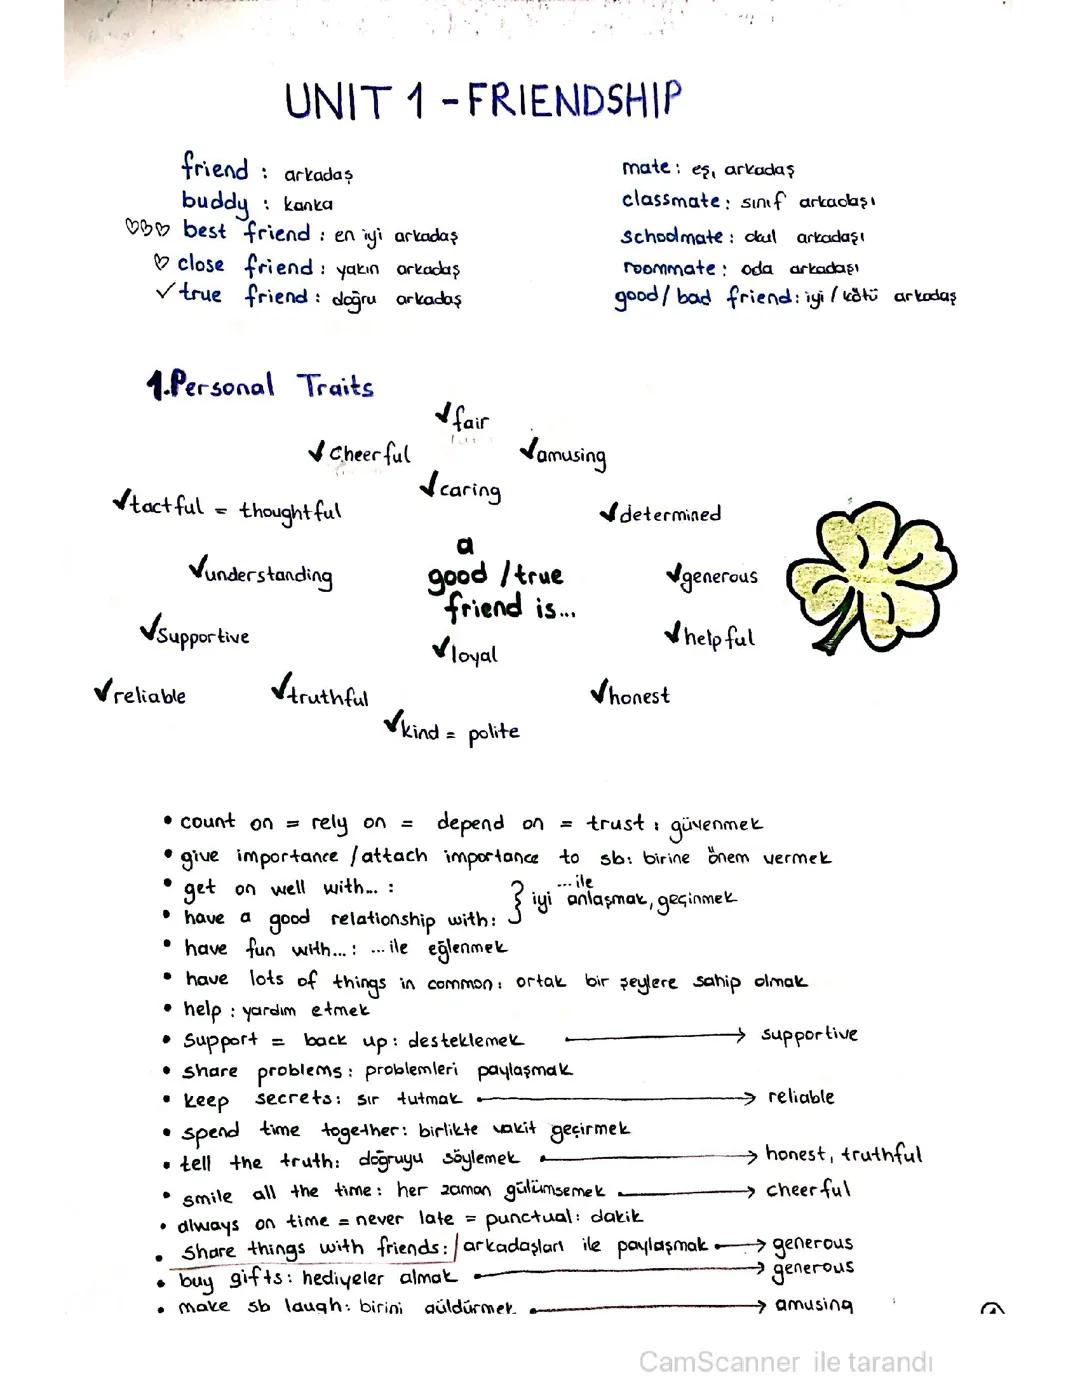 UNIT 1 - FRIENDSHIP
friend : arkadaş
buddy : kanka
best friend : en iyi arkadaş
close friend : yakın arkadaş
true friend : doğru arkadaş
mate : eş, arkadaş
classmate : sınıf arkadaşı
schoolmate : okul arkadaşı
roommate : oda arkadaşı
good / bad friend : iyi / kötü arkadaş
1.Personal Traits
✓fair
✓cheerful
✓amusing
✓caring
✓tactful = thoughtful
✓determined
✓understanding
a
good / true
friend is...
✓generous
✓supportive
✓loyal
✓helpful
✓reliable
✓truthful
✓honest
✓kind = polite
• count on = rely on = depend on = trust : güvenmek
• give importance / attach importance to sb: birine önem vermek
• get on well with... :
• have a good relationship with: } ...ile iyi anlaşmak, geçinmek
• have fun with... : ...ile eğlenmek
• have lots of things in common : ortak bir şeylere sahip olmak
• help : yardım etmek
• support = back up : desteklemek → supportive
• share problems : problemleri paylaşmak
• keep secrets : sır tutmak → reliable
• spend time together : birlikte vakit geçirmek
• tell the truth : doğruyu söylemek → honest, truthful
• smile all the time : her zaman gülümsemek → cheerful
• always on time = never late = punctual : dakik
• share things with friends : / arkadaşları ile paylaşmak → generous
• buy gifts : hediyeler almak → generous
• make sb laugh : birini güldürmek → amusing
CamScanner ile tarandı